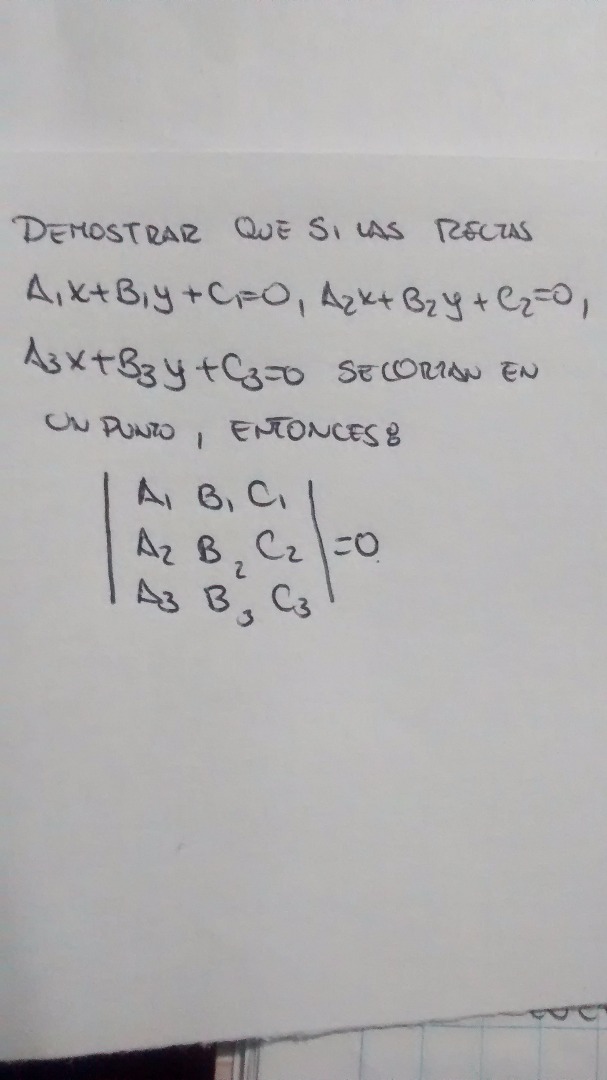 DEMOSTRAR QUE SI LAS RECTAS
A₁x+B₁y+C₁=0, A₂x+B₂y+C₂=0,
A₃x+B₃y+C₃=0 SE CORTAN EN
UN PUNTO, ENTONCES:
| A₁ B₁ C₁ |
| A₂ B₂ C₂ | =0.
| A₃ B₃ C₃ |